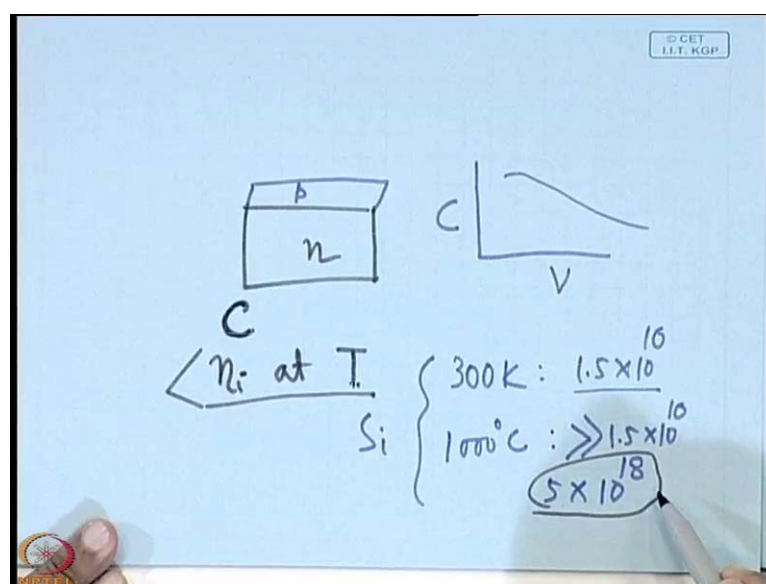 © CET
I.I.T. KGP
p
n
C
V
C
n_i at T.
Si
300K : 1.5×10^10
1000°C : ≫1.5×10^10
5×10^18
NPTEL